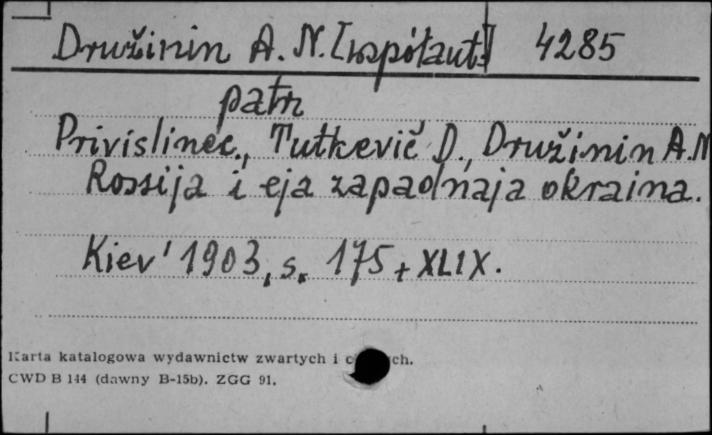 Družinin A. N. [współaut.] 4285
patrz
Privislinec., Tutkevič D., Družinin A.N
Rossija i eja zapadnaja okraina.
Kiev' 1903, s. 175 + XLIX.
Karta katalogowa wydawnictw zwartych i ch.
CWD B 144 (dawny B-15b). ZGG 91.